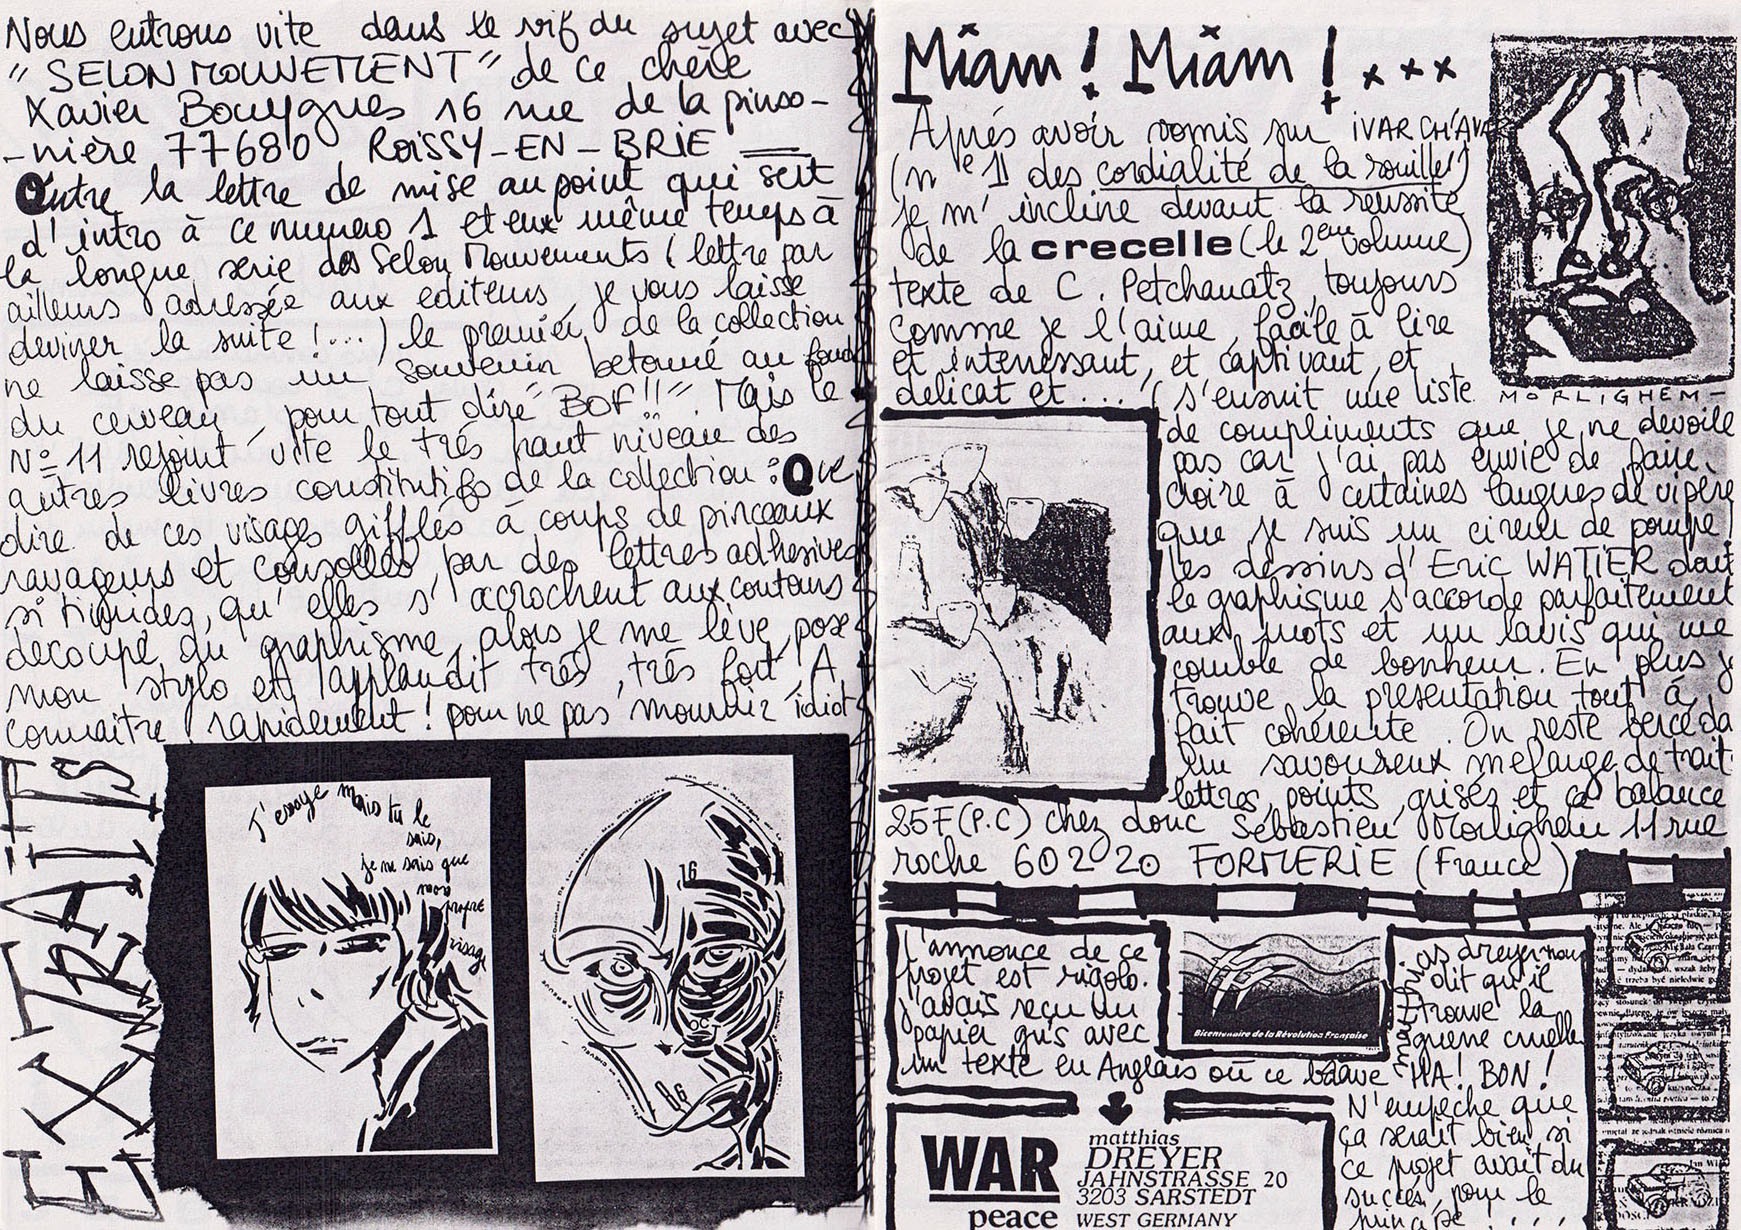 Nous entrons vite dans le vif du sujet avec
"SELON MOUVEMENT" de ce chère
Xavier Bouygues 16 rue de la pinso-
-nière 77680 ROISSY-EN-BRIE
Outre la lettre de mise au point qui sert
d'intro à ce numero 1 et en même temps à
la longue serie des Selon Mouvements (lettre par
ailleurs adressée aux editeurs, je vous laisse
deviner la suite !...) le premier de la collection
ne laisse pas un souvenir betonné au fond
du cerveau, pour tout dire "BOF!!". Mais le
N° 11 rejoint vite le très haut niveau des
autres livres constitutifs de la collection : Que
dire de ces visages gifflés à coups de pinceaux
ravageurs et consollés par des lettres adhesives
si rigides, qu'elles s'acrochent aux contours
découpé du graphisme, alors je me lève, pose
mon stylo et applaudit très, très fort. A
connaitre rapidement ! pour ne pas mourriz idiot
EXTRAITS
J'essaye mais tu le
sais,
je ne sais que
mon
propre
visage
16
OCT
86
Miam ! Miam ! ...
Aprés avoir vomis sur IVAR CH'AVAR
(n° 1 des cordialité de la rouille)
je m'incline devant la reussite
de la crecelle (le 2eme volume)
texte de C. Petchanatz, toujours
comme je l'aime, facile à lire
et interessant, et captivant, et
delicat et ... (s'ensuit une liste
MORLIGHEM-
de compliments que je ne devoile
pas car j'ai pas envie de faire
croire à certaines langues de vipère
que je suis un cireur de pompe)
les dessins d'Eric WATIER dont
le graphisme s'accorde parfaitement
aux mots et un lavis qui me
comble de bonheur. En plus je
trouve la presentation tout à
fait cohérente. On reste bercé da
un savoureux melange de trait
lettres, points, grisés et ça balance
25F (P.C) chez donc Sébastien Morlighem 11 rue
roche 60220 FORMERIE (France)
L'annonce de ce
projet est rigolo.
J'avais reçu un
papier gris avec
un texte en Anglais où ce brave
Bicentenaire de la Révolution Française
matthias dreyer nous
dit qu'il
trouve la
guerre cruelle
HA! BON!
N'empeche que
ça serait bien si
ce projet avait du
succés, pour le
principe ......
WAR
peace
matthias
DREYER
JAHNSTRASSE 20
3203 SARSTEDT
WEST GERMANY